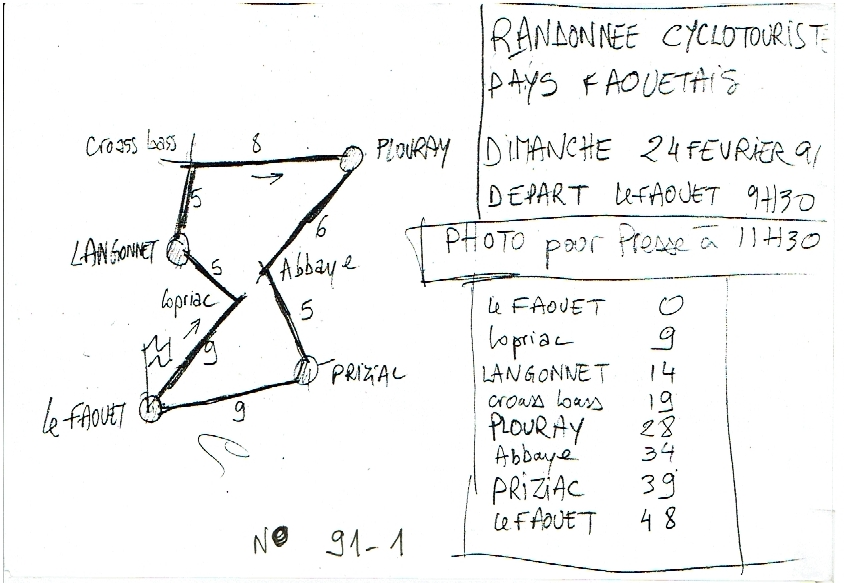 RANDONNEE CYCLOTOURISTE
PAYS FAOUETAIS
DIMANCHE 24 FEVRIER 91
DEPART le FAOUET 9H30
PHOTO pour Presse à 11H30
croass bass
8
PLOURAY
5
6
LANGONNET
5
Abbaye
lopriac
5
9
PRIZIAC
le FAOUET
9
le FAOUET 0
lopriac 9
LANGONNET 14
croass bass 19
PLOURAY 28
Abbaye 34
PRIZIAC 39
le FAOUET 48
N° 91-1